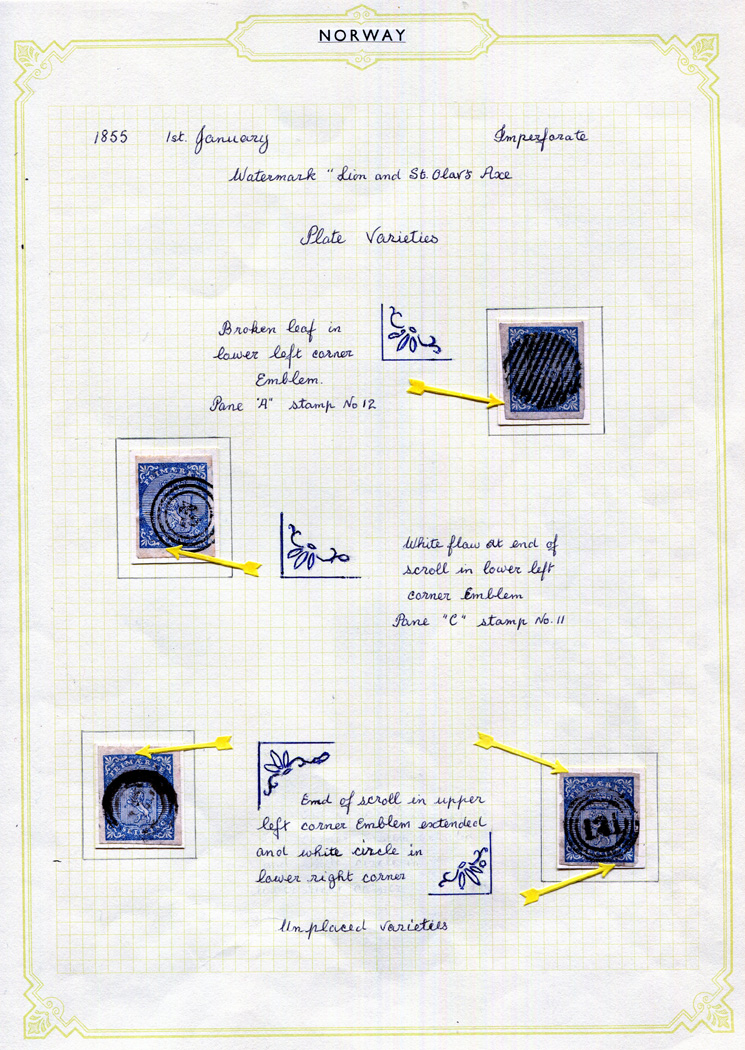 NORWAY
1855 1st. January Imperforate
Watermark "Lion and St. Olav's Axe
Plate Varieties
Broken leaf in
lower left corner
Emblem.
Pane "A" stamp No 12
FRIMÆRKE
White flaw at end of
scroll in lower left
corner Emblem
Pane "C" stamp No. 11
FRIMÆRKE
End of scroll in upper
left corner Emblem extended
and white circle in
lower right corner
FRIMÆRKE
121
Unplaced varieties